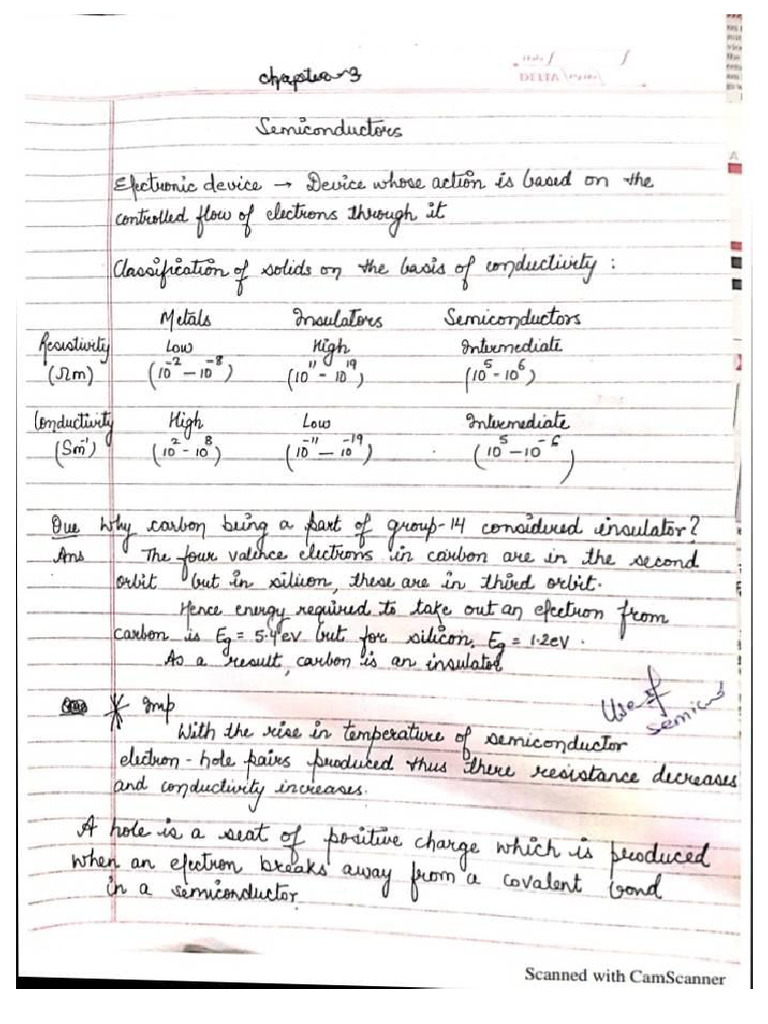 chapter 3
DELTA
Semiconductors
Electronic device → Device whose action is based on the
controlled flow of electrons through it
Classification of solids on the basis of conductivity :
Metals Insulators Semiconductors
Resistivity Low High Intermediate
(Ωm) (10⁻² – 10⁻⁸) (10¹¹ – 10¹⁹) (10⁵ - 10⁶)
Conductivity High Low Intermediate
(Sm⁻¹) (10² - 10⁸) (10⁻¹¹ – 10⁻¹⁹) (10⁵ – 10⁻⁶)
Que Why carbon being a part of group-14 considered insulator?
Ans The four valence electrons in carbon are in the second
orbit but in silicon, these are in third orbit.
Hence energy required to take out an electron from
carbon is Eg = 5.4 ev but for silicon, Eg = 1.2ev .
As a result, carbon is an insulator
Use of
semicond
Imp
With the rise in temperature of semiconductor
electron-hole pairs produced thus there resistance decreases
and conductivity increases.
A hole is a seat of positive charge which is produced
when an electron breaks away from a covalent bond
in a semiconductor
Scanned with CamScanner